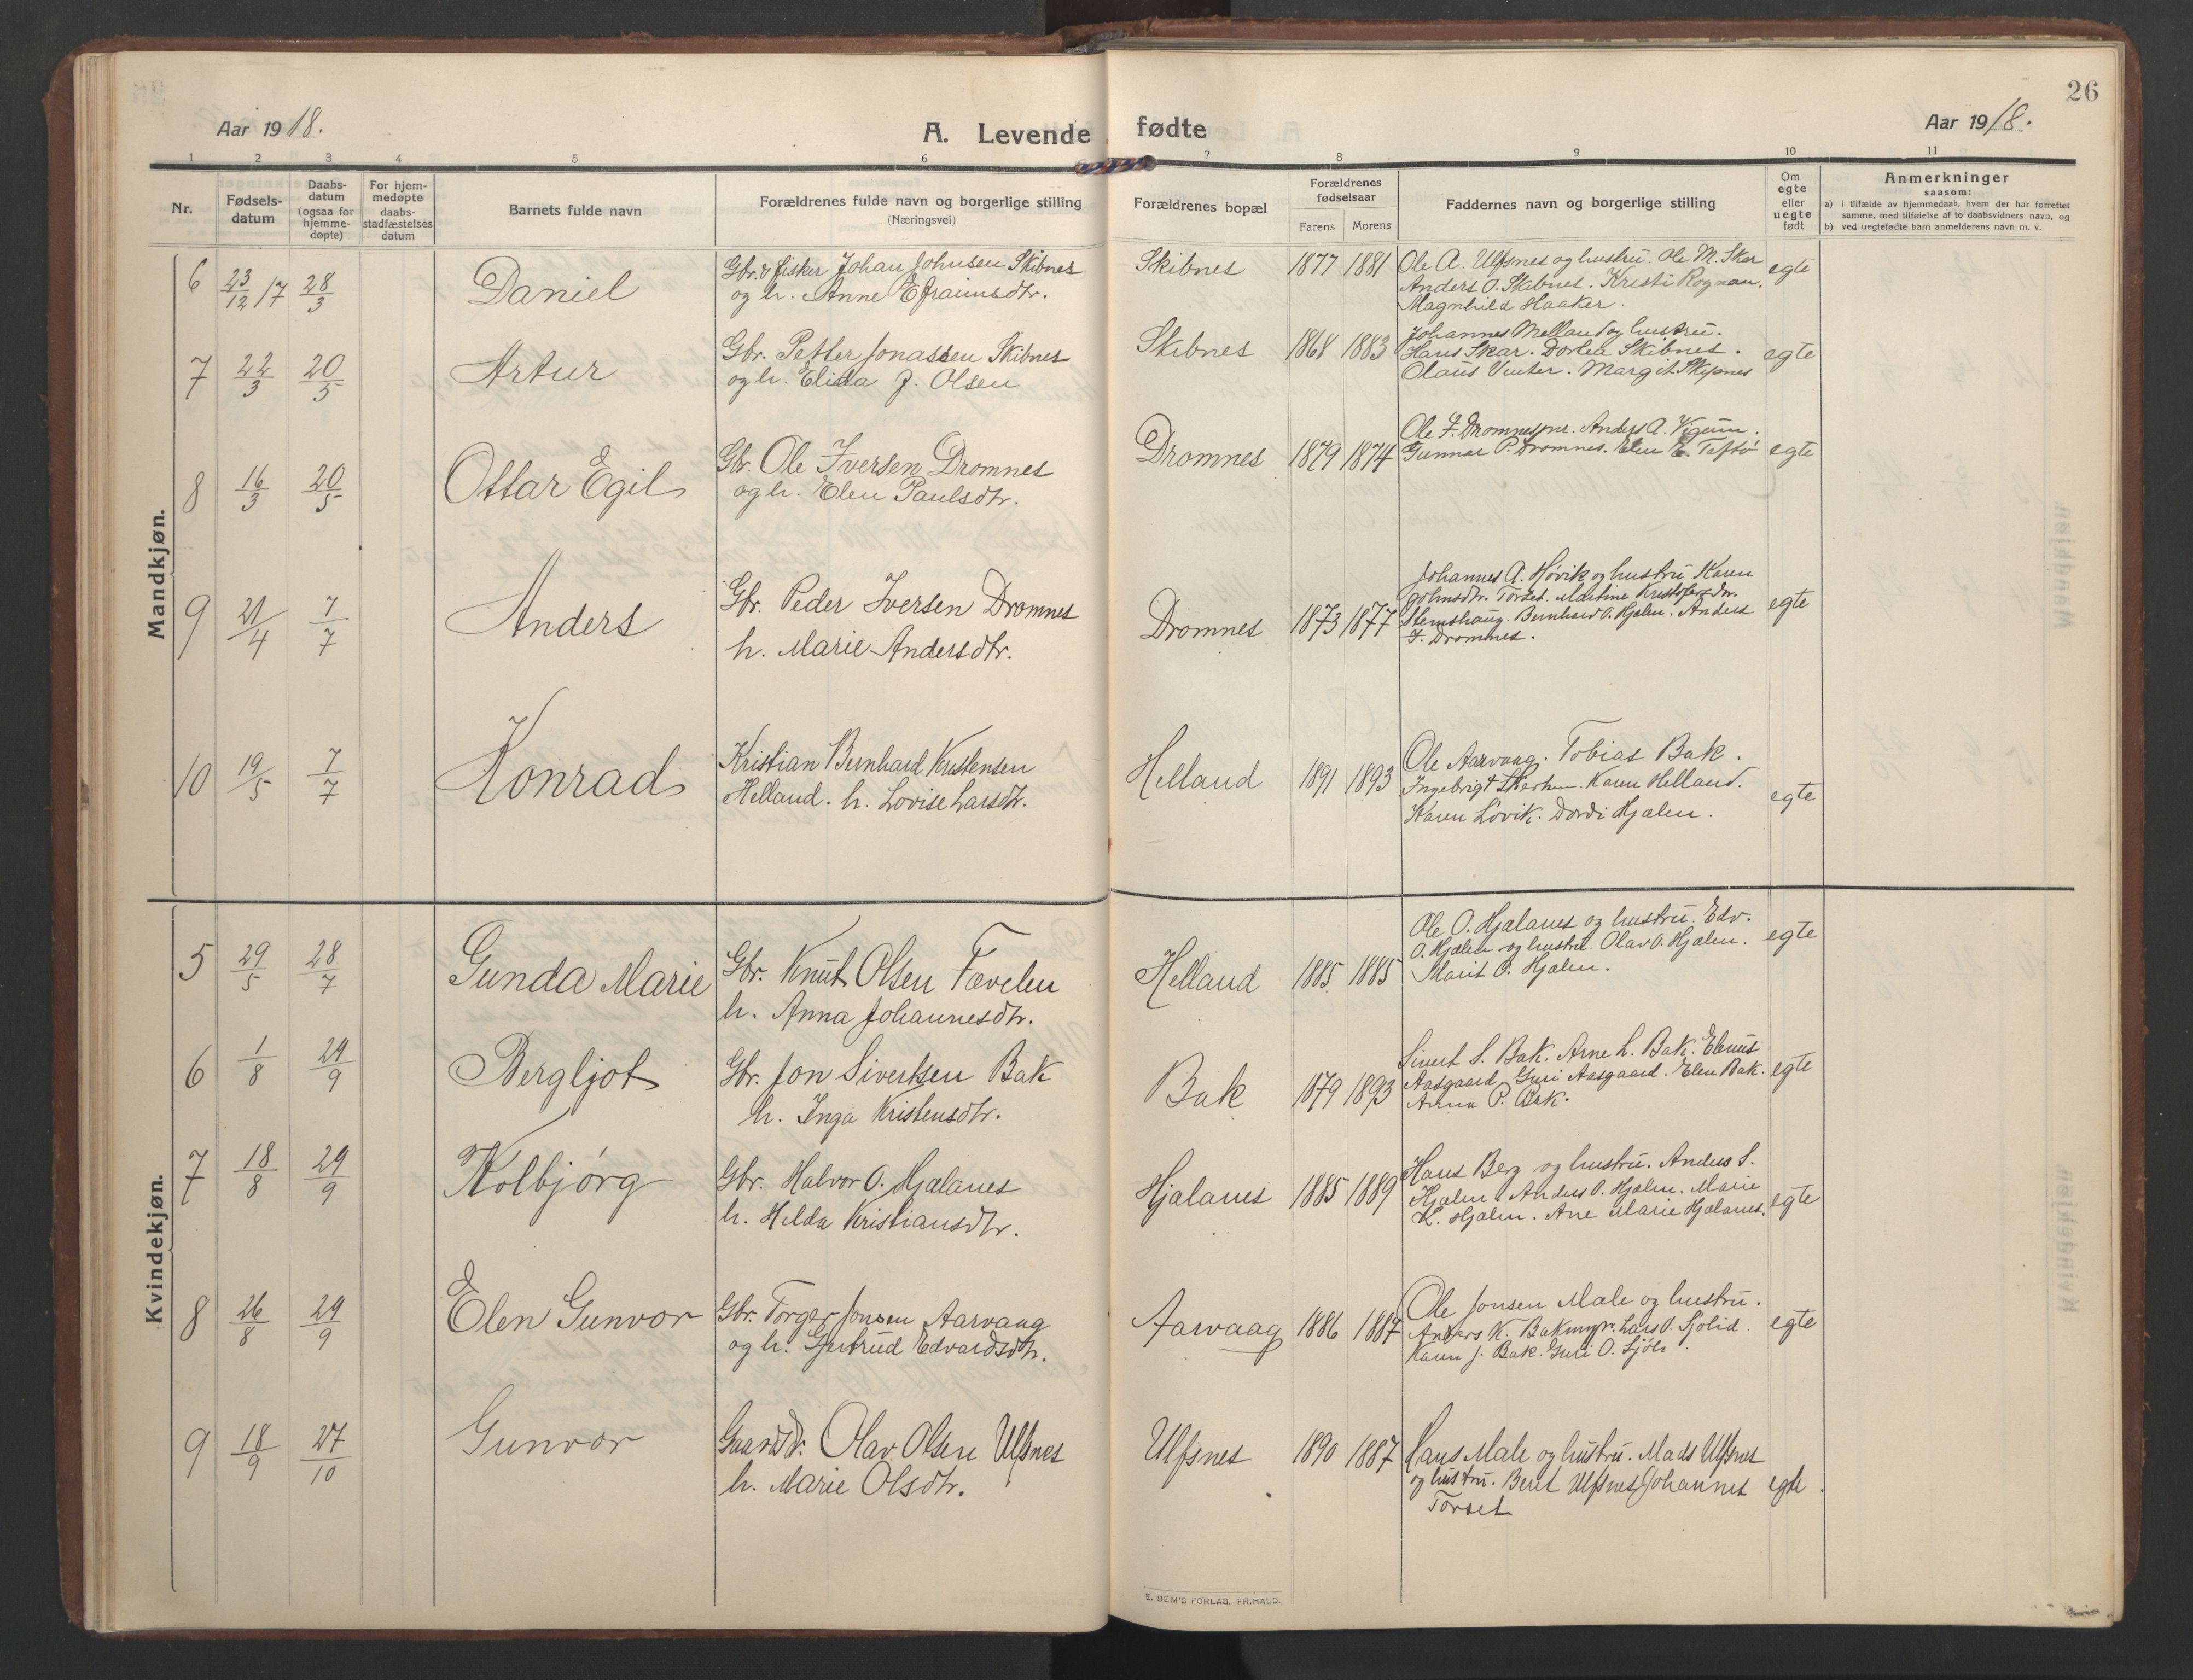 26
Aar 1918.
A. Levende fødte
Aar 1918.
1 2 3 4 5 6 7 8 9 10 11
Nr.
Fødsels-
datum
Daabs-
datum
(ogsaa for
hjemme-
døpte)
For hjem-
medøpte
daabs-
stadfæstelses
datum
Barnets fulde navn
Forældrenes fulde navn og borgerlige stilling
(Næringsvei)
Forældrenes bopæl
Forældrenes
fødselsaar
Farens Morens
Faddernes navn og borgerlige stilling
Om
egte
eller
uegte
født
Anmerkninger
saasom:
a) i tilfælde av hjemmedaab, hvem der har forrettet
samme, med tilføielse af to daabsvidners navn, og
b) ved uegtefødte barn anmelderens navn m. v.
Mandkjøn.
6 23/12 17 28/3 Daniel
Gbr. & fisker Johan Johnsen Skibnes
og h. Anne Efraimsdtr.
Skibnes 1877 1881
Ole A. Ulfsnes og hustru. Ole M. Skar
Anders O. Skibnes. Kristi Rognan.
Magnhild Haaker.
egte
7 22/3 20/5 Artur
Gbr. Petter Jonassen Skibnes
og h. Elida J. Olsen
Skibnes 1868 1883
Johannes Melland og hustru.
Hans Skar. Dortea Skibnes.
Olaus Vinter. Margit Skipnes
egte
8 16/3 20/5 Ottar Egil
Gbr. Ole Iversen Dromnes
og h. Elen Paulsdtr.
Dromnes 1879 1874
Ole I. Dromnes jnr. Anders A. Vigeum.
Gunnar P. Dromnes. Elen E. Taftø
egte
9 21/4 7/7 Anders
Gbr. Peder Iversen Dromnes
h. Marie Andersdtr.
Dromnes 1873 1877
Johannes A. Høvik og hustru Karen
Johnsdtr. Torset. Martine Kristofersdtr.
Stemshaug. Bernhard O. Hjelen. Anders
I. Dromnes.
egte
10 19/5 7/7 Konrad
Kristian Bernhard Kristensen
Helland. h. Lovise Larsdtr.
Helland 1891 1893
Ole Aarvaag. Tobias Bak.
Ingebrigt Karen Helland.
Karen Løvik. Dordi Hjælen.
egte
Kvindekjøn.
5 29/5 28/7 Gunda Marie
Gbr. Knut Olsen Fævelen
h. Anna Johannesdtr.
Helland 1885 1885
Ole O. Hjælanes og hustru. Edv.
O. Hjælen og hustru. Olav O. Hjælen.
Marit O. Hjælen.
egte
6 1/8 29/9 Bergljot
Gbr. Jon Sivertsen Bak
h. Inga Kristensdtr.
Bak 1879 1893
Sivert S. Bak. Arne L. Bak.
Aasgaard. Guri Aasgaard. Elen Bak.
Anna P. Bak.
egte
7 18/8 29/9 Kolbjørg
Gbr. Halvor O. Hjælanes
h. Hilda Kristiansdtr.
Hjælanes 1885 1889
Hans Berg og hustru. Anders S.
Hjælen. Anders O. Hjælen. Marie
K. Hjælen. Ane Marie Hjælanes.
egte
8 26/8 29/9 Elen Gunvor
Gbr. Torger Jonsen Aarvaag
og h. Gjertrud Edvardsdtr.
Aarvaag 1886 1887
Ole Jonsen Male og hustru.
Anders K. Bakmyr. Lars O. Sjølid.
Karen J. Bak. Guri O. Sjøli.
egte
9 18/9 27/10 Gunvor
Gaardbr. Olav Olsen Ulfsnes
h. Marie Olsdtr.
Ulfsnes 1890 1887
Hans Male og hustru. Mads Ulfsnes
og hustru. Beret Ulfsnes Johannes
Torset
egte.
E. SEM'S FORLAG, FR.HALD.